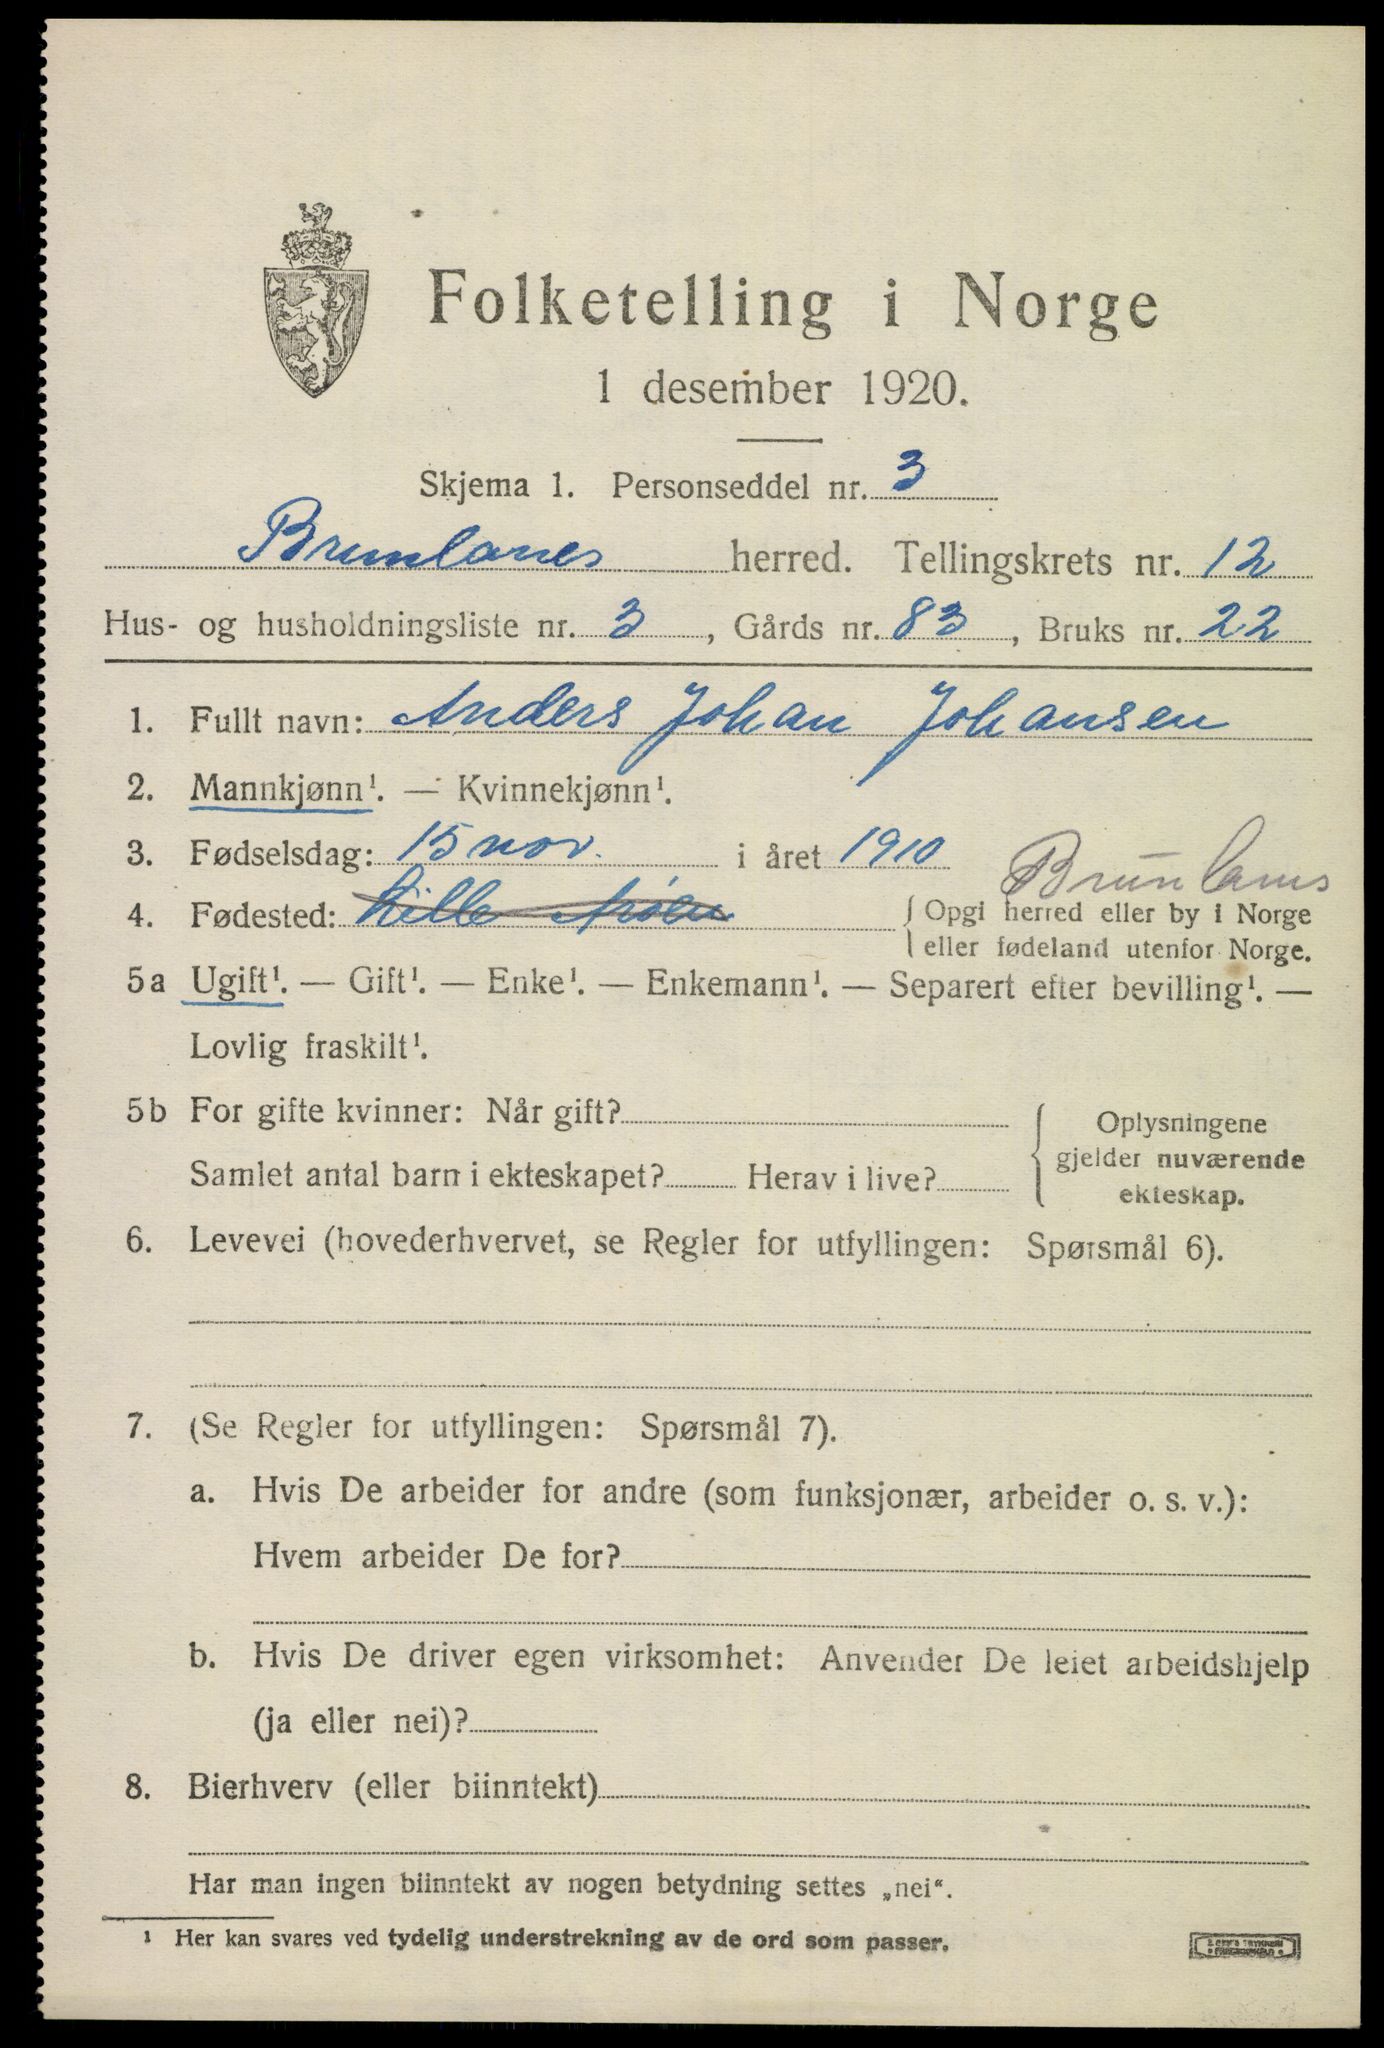 Folketelling i Norge
1 desember 1920.
Skjema 1. Personseddel nr. 3
Brunlanes herred. Tellingskrets nr. 12
Hus- og husholdningsliste nr. 3, Gårds nr. 83, Bruks nr. 22
1. Fullt navn: Anders Johan Johansen
2. Mannkjønn¹. — Kvinnekjønn¹.
3. Fødselsdag: 15 nov. i året 1910
Brunlanes
4. Fødested: Lille { Opgi herred eller by i Norge
eller fødeland utenfor Norge.
5a Ugift¹. — Gift¹. — Enke¹. — Enkemann¹. — Separert efter bevilling¹. —
Lovlig fraskilt¹.
5b For gifte kvinner: Når gift? { Oplysningene
gjelder nuværende
Samlet antal barn i ekteskapet? Herav i live?
ekteskap.
6. Levevei (hovederhvervet, se Regler for utfyllingen: Spørsmål 6).
7. (Se Regler for utfyllingen: Spørsmål 7).
a. Hvis De arbeider for andre (som funksjonær, arbeider o. s. v.):
Hvem arbeider De for?
b. Hvis De driver egen virksomhet: Anvender De leiet arbeidshjelp
(ja eller nei)?
8. Bierhverv (eller biinntekt)
Har man ingen biinntekt av nogen betydning settes „nei“.
¹ Her kan svares ved tydelig understrekning av de ord som passer.